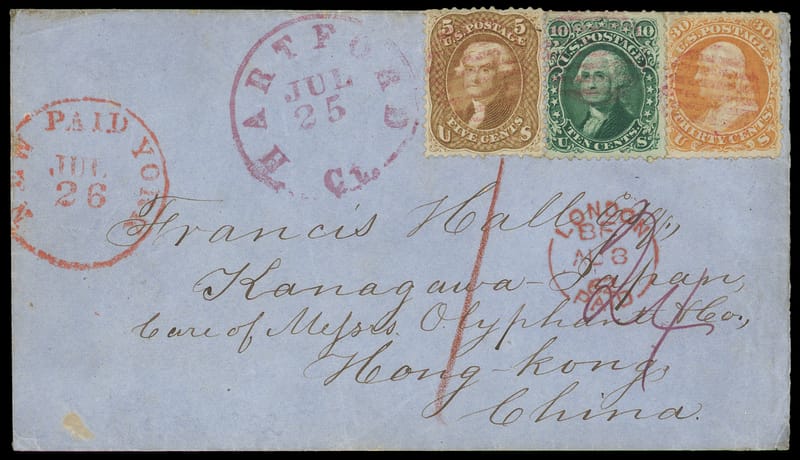 HARTFORD CT.
JUL
25
5 5
U.S. POSTAGE
FIVE CENTS
U S
10 10
U.S. POSTAGE
TEN CENTS
U S
30 30
U.S. POSTAGE
THIRTY CENTS
U S
NEW PAID YORK
JUL
26
LONDON
PAID
Francis Hall Esq,
Kanagawa-Japan,
Care of Messrs. Olyphant & Co.,
Hong-kong,
China.